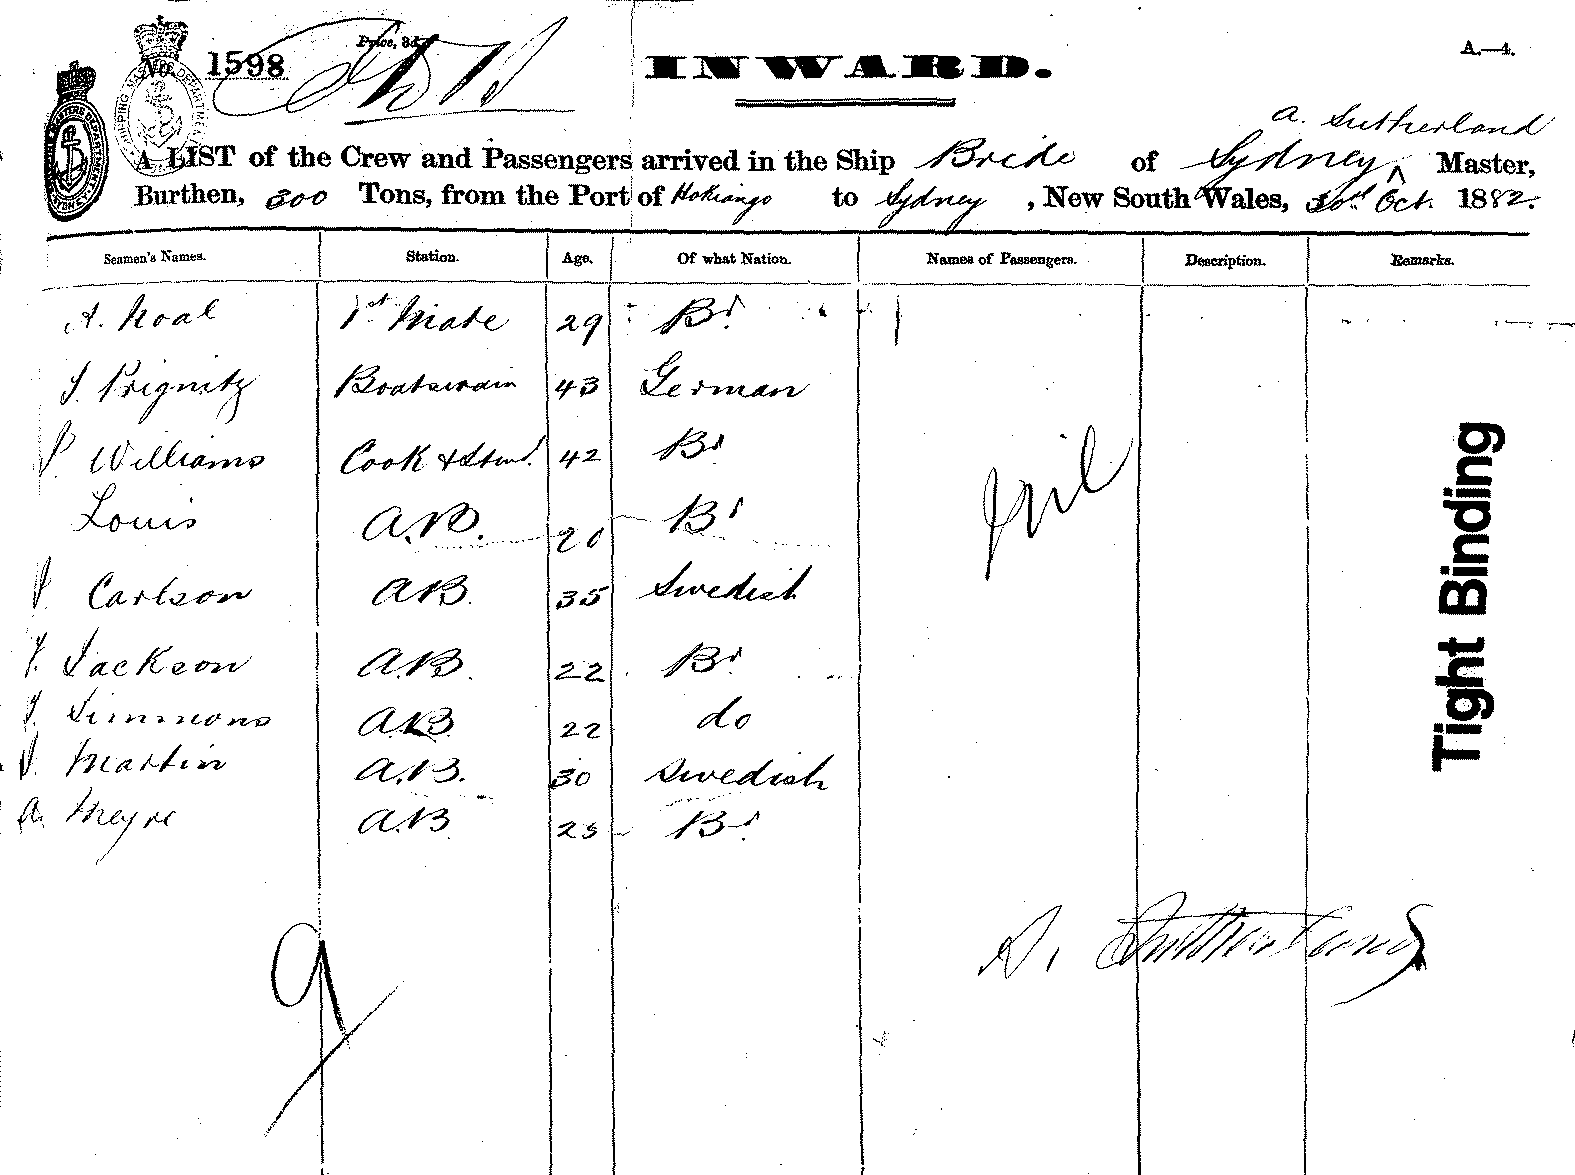 Price, 3d.
No. 1598
INWARD.
A.—4.
A. Sutherland
A LIST of the Crew and Passengers arrived in the Ship Bride of Sydney, Master,
Burthen, 300 Tons, from the Port of Hokianga to Sydney, New South Wales, Oct. 1882.
Seamen's Names. Station. Age. Of what Nation. Names of Passengers. Description. Remarks.
A. Noal 1st Mate 29 Br
Prignitz Boatswain 43 German
Williams Cook & Stwd. 42 Br
Louis A.B. 20 Br
Nil
Carlson AB. 35 Swedish
Jackson A.B. 22 Br
Simmons AB 22 do
Martin A.B. 30 Swedish
A. Meyre A.B. 25 Br
A. Sutherland
9
Tight Binding